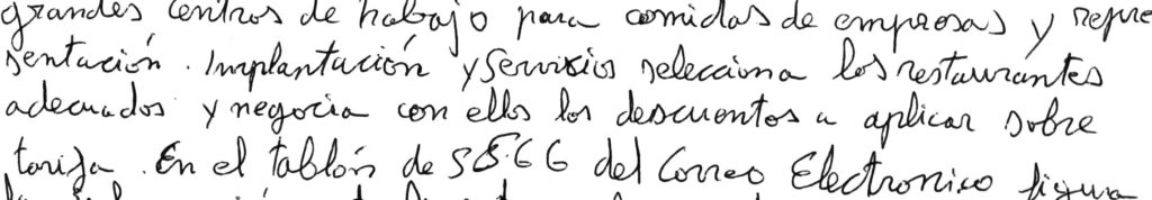 grandes centros de trabajo para comidas de empresas y repre
sentación. Implantación y Servicios selecciona los restaurantes
adecuados y negocia con ellos los descuentos a aplicar sobre
tarifa. En el tablón de SS.GG del Correo Electronico figura